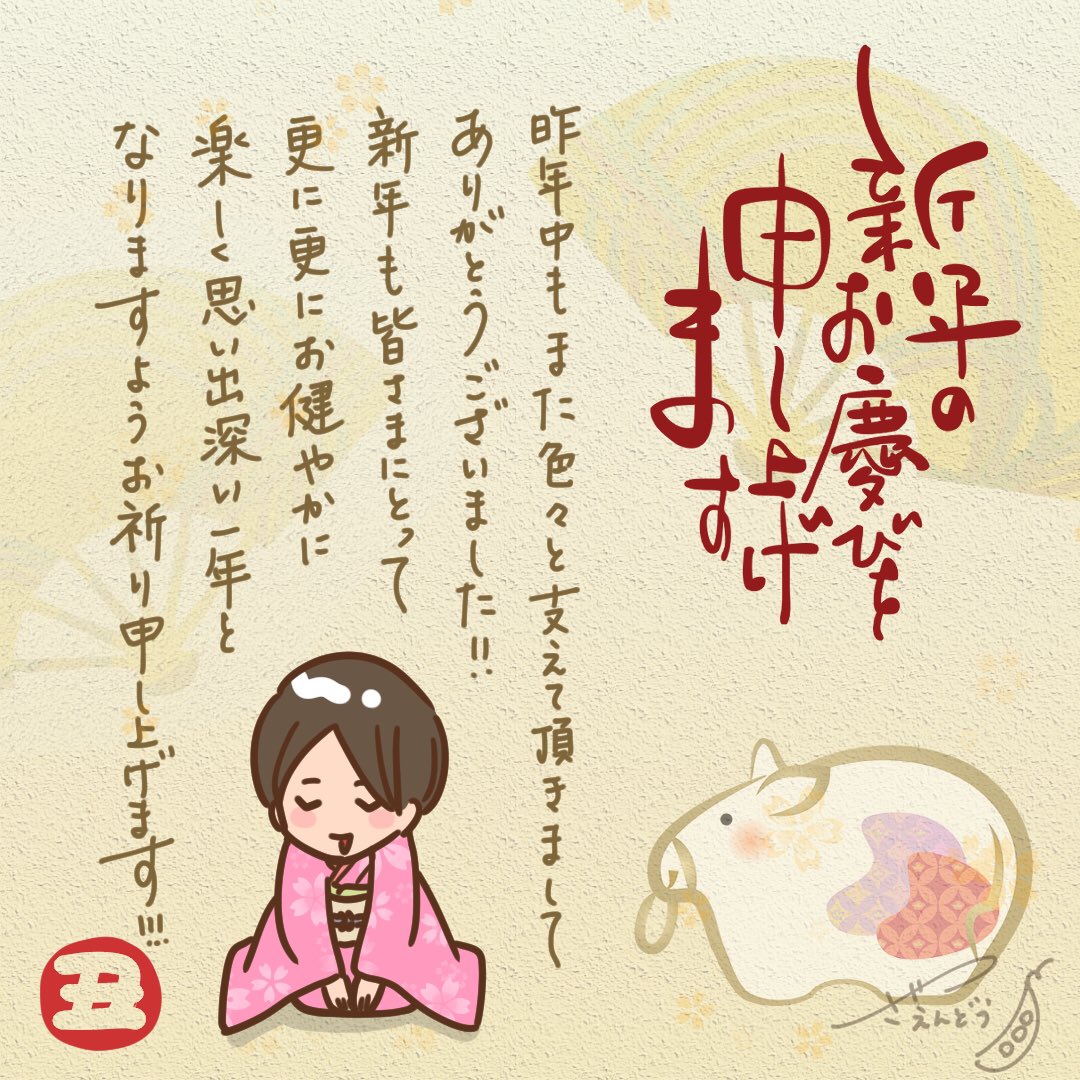 新年の
お慶びを
申し上げ
ます
昨年中もまた色々と支えて頂きまして
ありがとうございました!!
新年も皆さまにとって
更に更にお健やかに
楽しく思い出深い一年と
なりますようお祈り申し上げます!!!
丑
さやえんどう